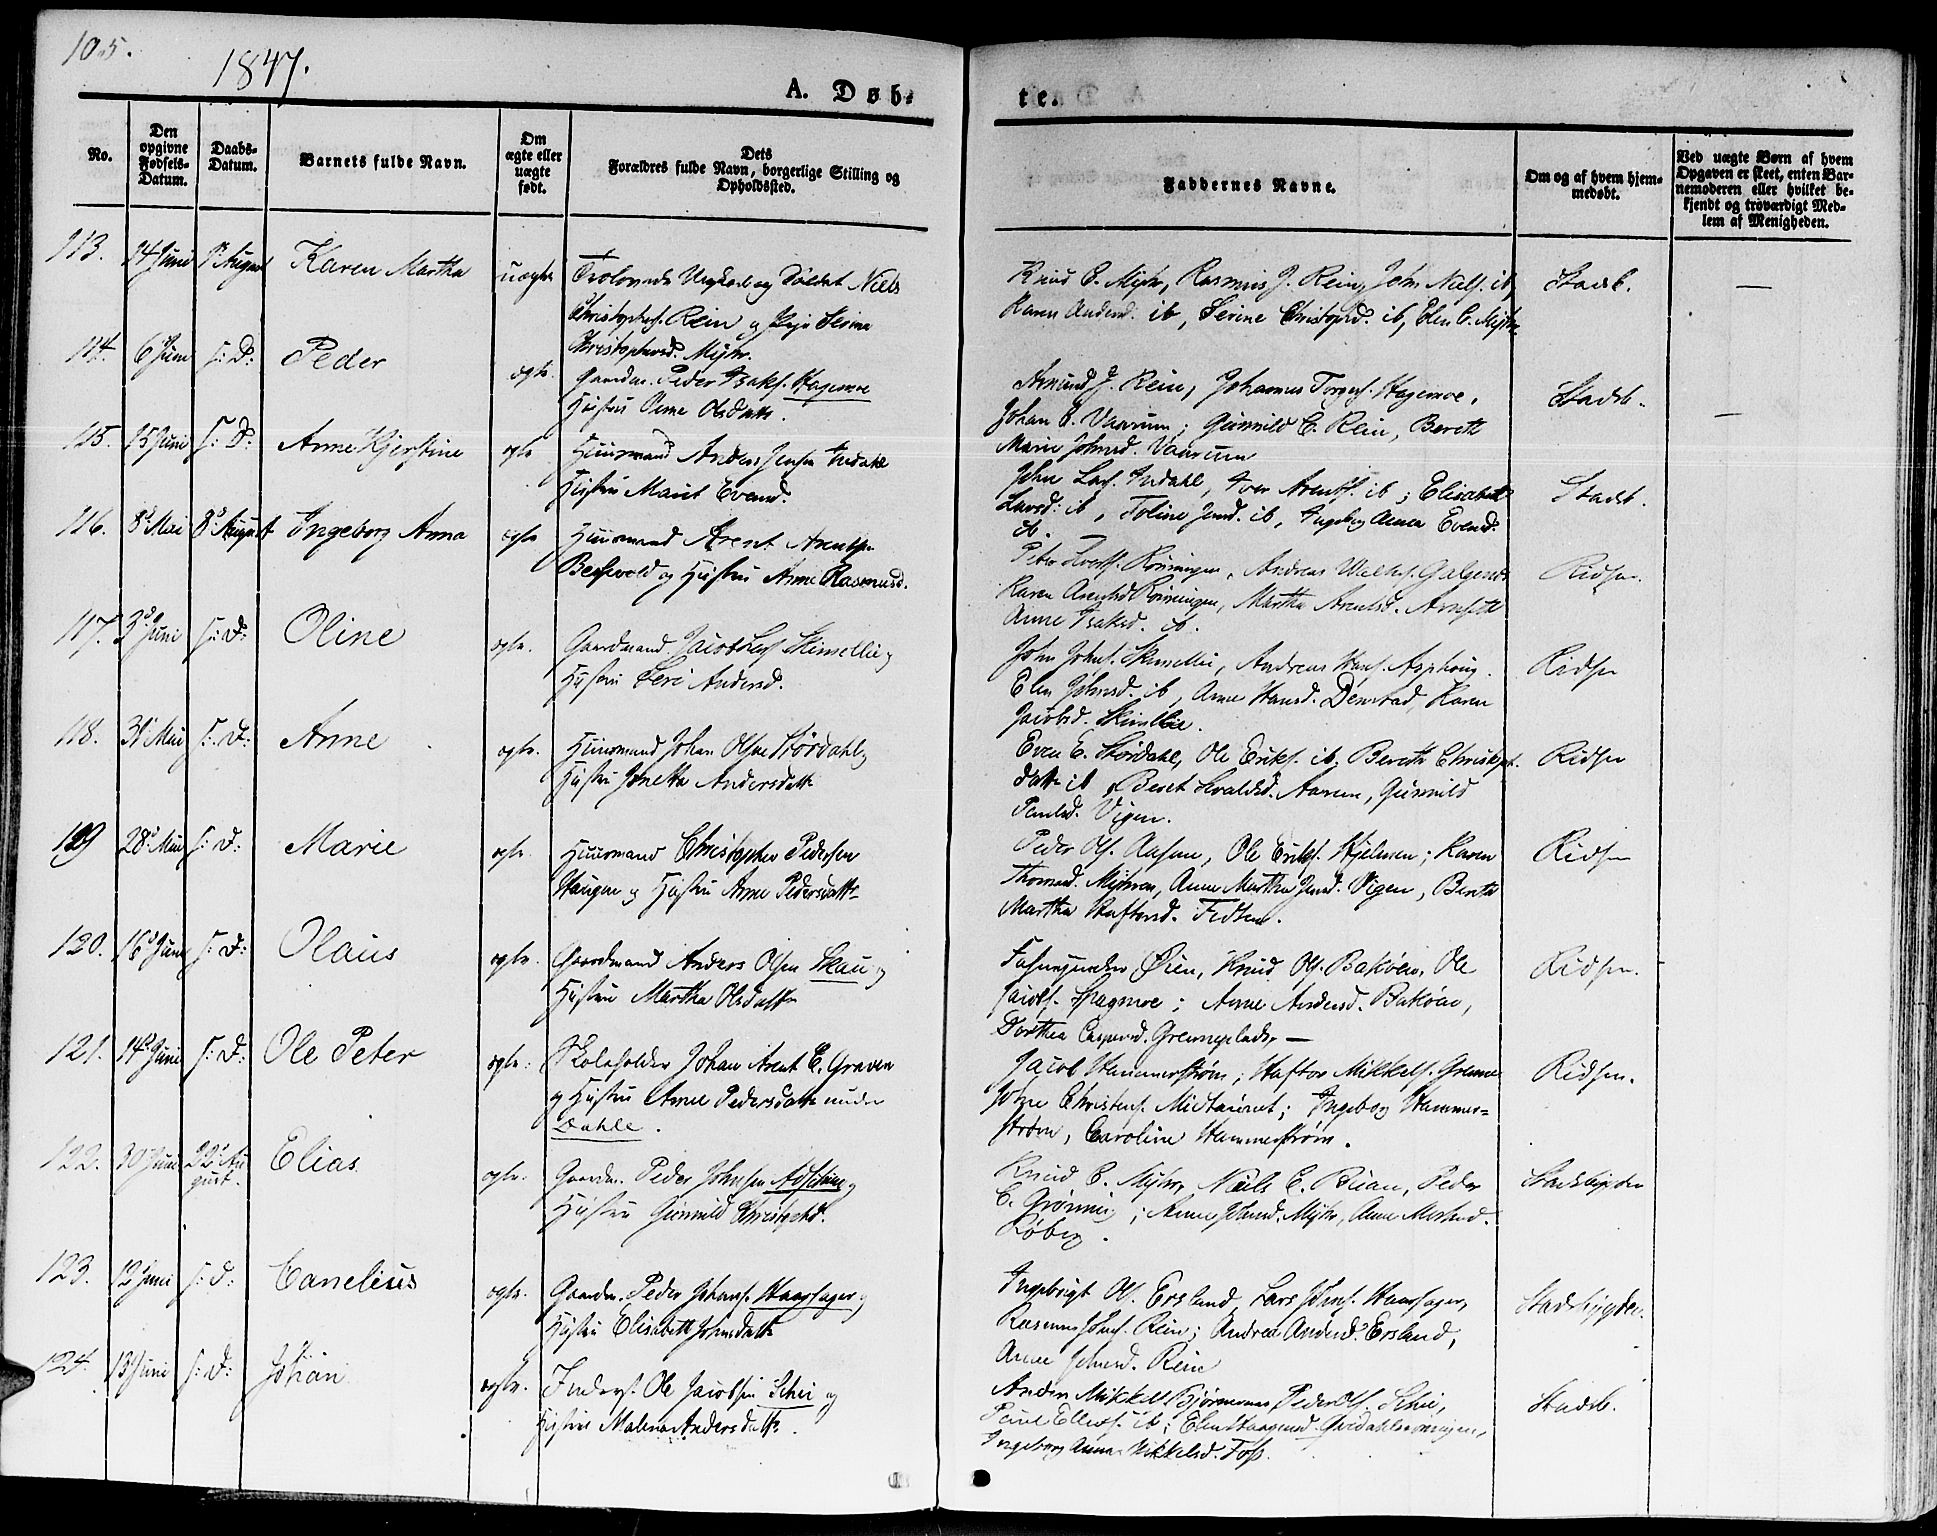 105.
1847.
A. Døb-
ten
No.
Den opgivne Fødsels-Datum.
Daabs-Datum.
Barnets fulde Navn.
Om ægte eller uægte født.
Dets Forældres fulde Navn, borgerlige Stilling og Opholdssted.
Faddernes Navne.
Om og af hvem hjem-medøbt.
Ved uægte Børn af hvem Opgaven er skeet, enten Bar-nemoderen eller hvilket be-kjendt og troværdigt Med-lem af Menigheden.
113. 14 Juni 1 August Karen Martha uægte
Trolovede Ungkarl og Soldat Niels
Christophers. Rein og Pige Serine
Christophersd. Myhr.
Knud C. Myhr, Rasmus J. Rein, John Niels. ib,
Karen Andersd. ib, Serine Christophd. ib, Elen C. Myhr
Stadsb. —
114. 6 Juni s: D: Peder ægte.
Gaardm. Peder Isaks. Hagemoe
Hustru Olsdatt.
Amund J. Rein, Johannes Hagemoe,
Johan C. Vaarum; Gunnild C. Rein, Bereth
Marie Johnsd. Vaarum
Stadsb. —
115. 15 Juni s: D: Anne Kjerstine ægte
Huusmand Anders Jensen Indahl
Hustru Marit Evensd.
John Lars. Indahl, Iver Arents. ib; Elisabeth
Larsd. ib, Toline Jensd. ib, Ingeborg Anna Evensd.
ib. —
Stadsb.
116. 8d Mai 8d August Ingeborg Anna ægte
Huusmand Arent Arentsen
og Hustru Anne Rasmusd.
Peter Rønningen, Andreas Galgenes
Karen Arentsd Rønningen, Martha Arentsd.
Anne Isaksd. ib.
Ridsen.
117. 3d Juni s: D: Oline ægte.
Gaardmand Jacob Skimellie og
Hustru Siri Andersd.
John Johns. Skimellie, Andreas Hans. Asphoug.
Elen Johnsd. ib, Anne Hansd. Demstad, Karen
Jacobsd. Skimellie.
Ridsen
118. 31 Mai s: D: Anne ægte.
Huusmand Johan Olsen Størdahl og
Hustru Jonetta Andersdatt
Even E. Størdahl, Ole Eriks. ib, Bereth Christoph.
datt ib, Beret Aasen, Gunnild
Paulsd. Vigen.
Ridsen
119 28d Mai s: D: Marie ægte.
Huusmand Christopher Pedersen
Haugen og Hustru Anne Pedersdatt
Peder Ol. Aasen, Ole Eriks. Hjelmen; Karen
Thomasd. Myhren, Anne Martha Jensd. Vigen, Bereth
Martha
Ridsen
120. 16d Juni s: D: Olaus ægte.
Gaardmand Anders Olsen Skau og
Hustru Martha Olsdatt
Øien, Knud Ols. Bakøen, Ole
Jacobs. Hagmoe; Anne Andersd. Bakøen,
Dorthea Caspersd. —
Ridsen.
121. 14d Juni s: D: Ole Peter ægte:
Skoleholder Johan Arent E. Graven
og Hustru Anne Pedersdatt under
Dahle.
Jacob Hammerstrøm; Haftor Mikkels.
Johan Christens. Ingeborg Hammer=
strøm, Caroline Hammerstrøm.
Ridsen.
122. 30 Juni 22d Au
gust. Elias ægte.
Gaardm. Peder Johnsen og
Hustru Gunnild Christophd.
Knud C. Myhr, Niels C. Peder
C. Grønning; Anne Johnsd. Myhr, Anne
Røberg.
Stadsbygden
123. 12 Juni s: D: Canelius ægte.
Gaardm. Peder Johans. Haarsager og
Hustru Elisabeth Johnsdatt
Ingebrigt Ol. Ersland, Lars Johns. Haarsager,
Rasmus Johns. Rein; Andrea Andersd. Ersland,
Anne Johnsd. Rein
Stadsbygden.
124. 13 Juni s: D: Johan ægte.
Inderst. Ole Jacobsen Schei og
Hustru Malena Andersdatt.
Anders Mikkels Bjørnernes, Peder Ols. Schei,
Paul Ellefs. ib; Elen
Ingeborg Anna Mikkelsd. Foss.
Stadsb.